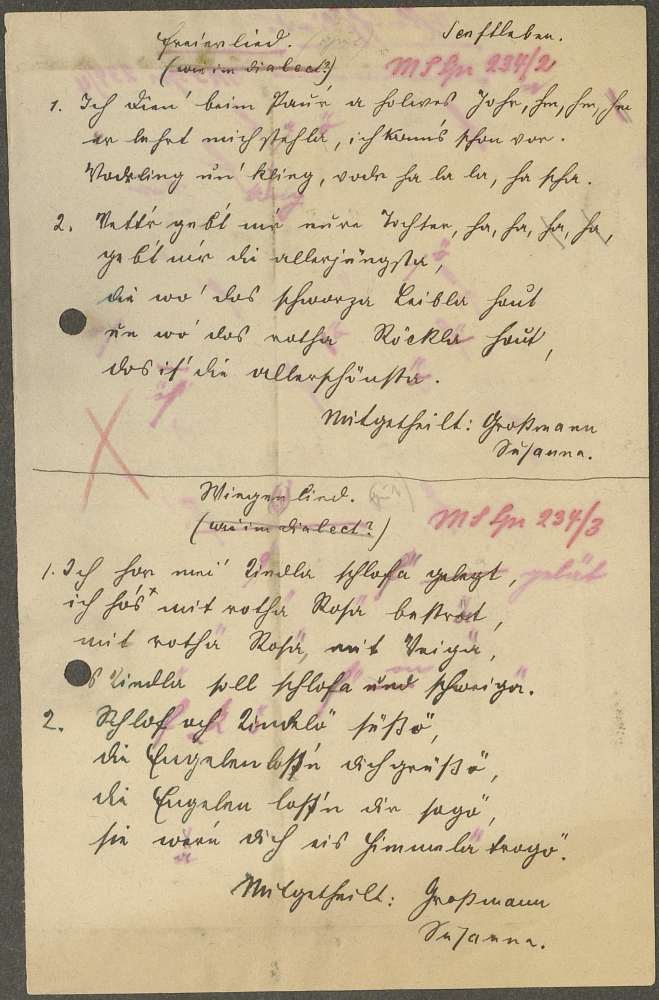 Freierlied. Senftleben.
(wie im Dialect?) MS Gr 234/2
1. Ich dien' beim Paur a holwes Johr, hm, hm, hm
er lehrt mich stehla, ich kanns schon vor.
un' kling, ha la la, ha
2. Vett'r gebt mir eure Tochter, ha, ha, ha, ha,
gebt mir die allerjüngsta,
die wo' das schworza Leibla haut
un wo' das rotha Röckla haut,
das is' die allerschönsta.
Mitgetheilt: Großmann
Susanna.
Wiegenlied.
(wie im Dialect?) MS Gr 234/3
1. Ich hor mei' Kindla schlofa gelegt,
ich hos' mit rotha Rosa bestrat,
mit rotha Rosa, mit Veiga,
's Kindla soll schlofa und schweiga.
2. Schlof och Kindelö süßö,
die Engelen loss'n dich grüßö,
die Engelen loss'n dir sagö,
sie wern dich eis Himmela trogö.
Mitgetheilt: Großmann
Susanna.